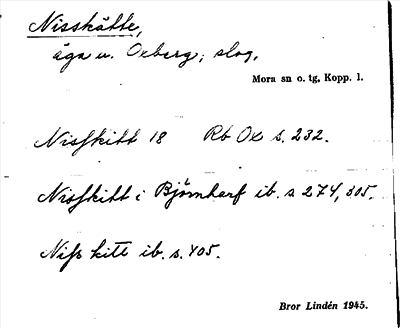 Nisskätte,
äga u. Oxberg; slog.
Mora sn o. tg, Kopp. l.
Nisskitt 18 Rb Ox s. 232.
Nisskitt i Björnharf ib. s 274, 305.
Niss kitt ib. s. 405.
Bror Lindén 1945.